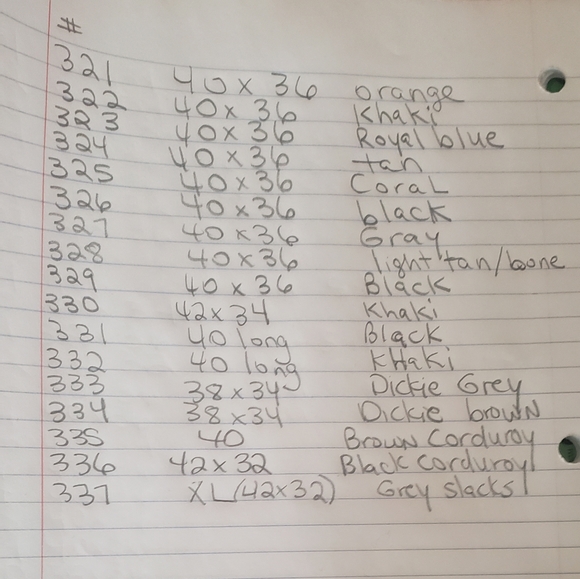 #
321 40 x 36 orange
322 40 x 36 Khaki
323 40 x 36 Royal blue
324 40 x 36 tan
325 40 x 36 Coral
326 40 x 36 black
327 40 x 36 Gray
328 40 x 36 light tan/bone
329 40 x 36 Black
330 42 x 34 Khaki
331 40 long Black
332 40 long KHaki
333 38 x 34 Dickie Grey
334 38 x 34 Dickie browN
335 40 Brown Corduroy
336 42 x 32 Black Corduroy
337 XL (42 x 32) Grey slacks